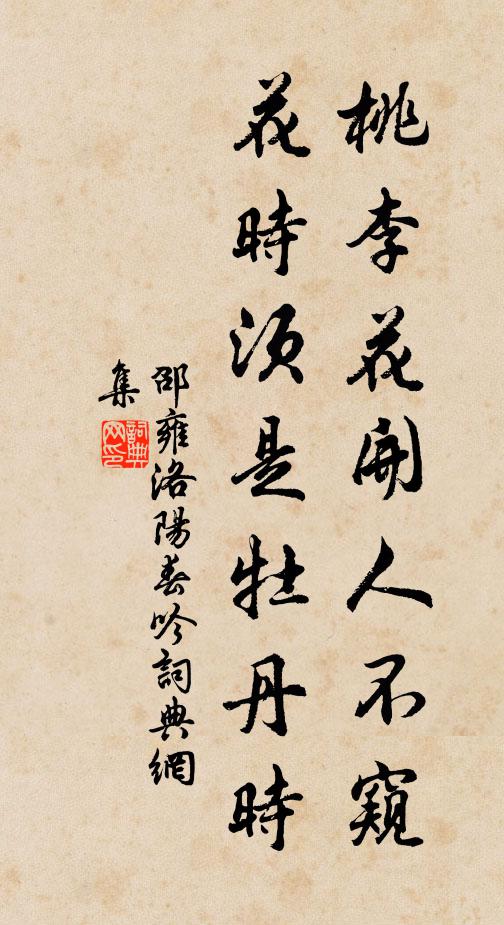 桃李花開人不窺
花時須是牡丹時
邵雍洛陽春吟詞典網
集
詞典網印